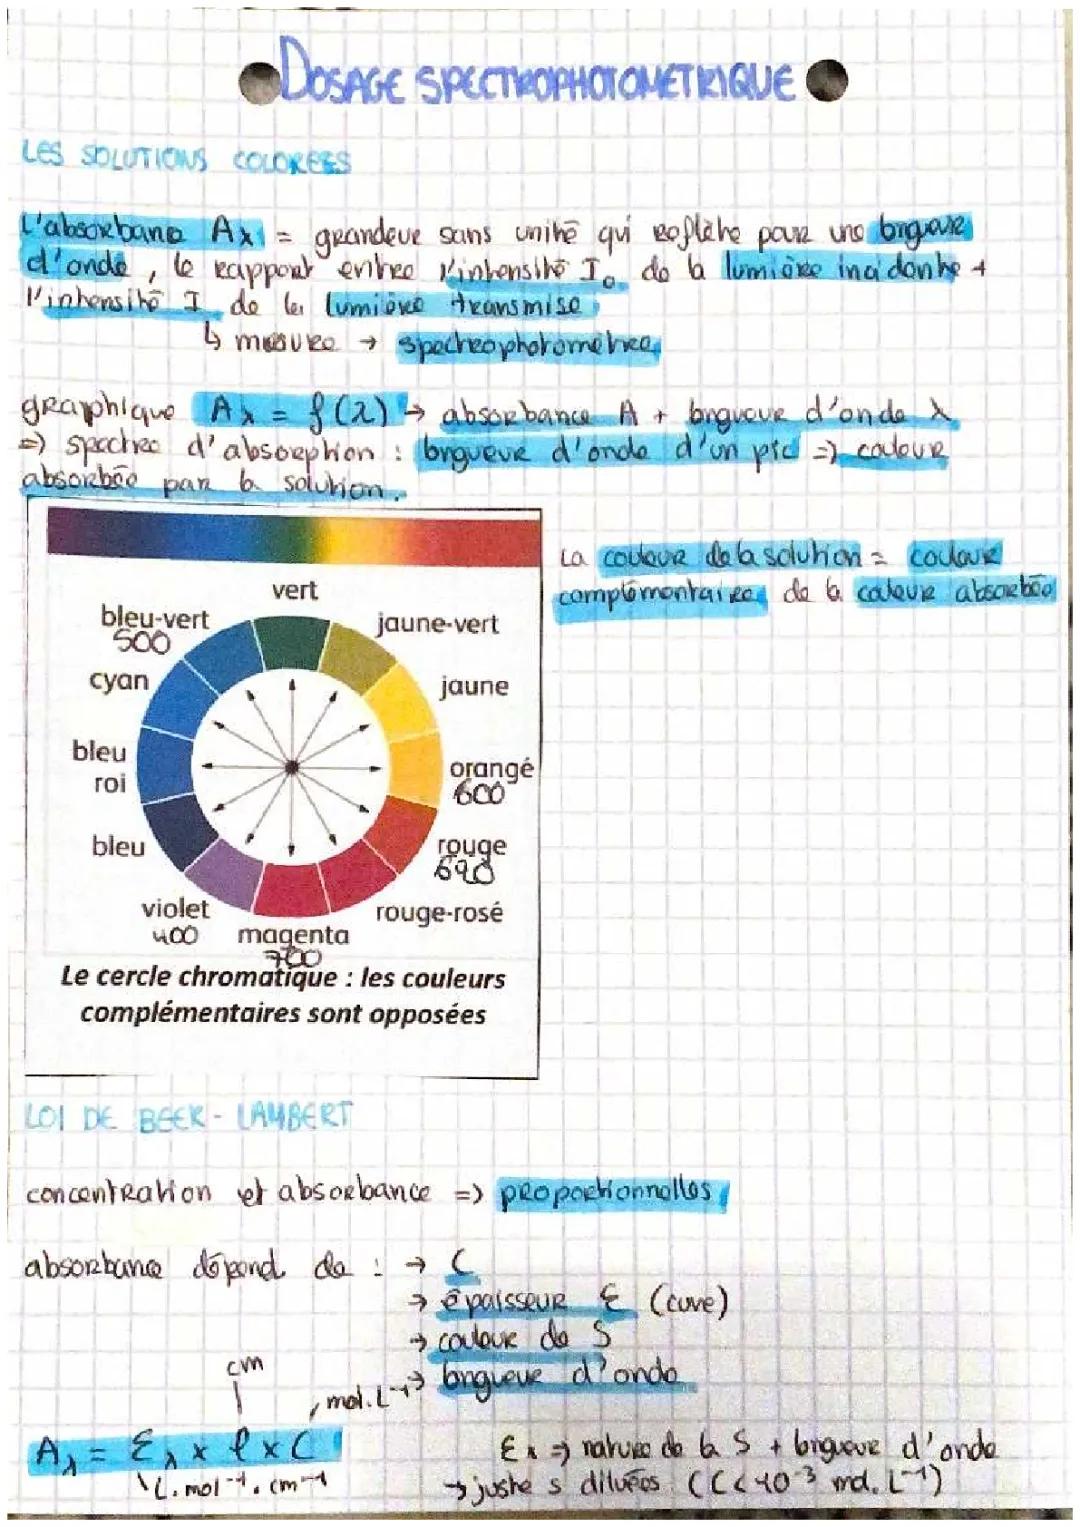 DOSAGE SPECTROPHOTOMETRIQUE
LES SOLUTIONS COLOREES
L'absorbance Aλ = grandeur sans unité qui reflète pour une longueur
d'onde, le rapport entre l'intensité I₀ de la lumière incidente +
l'intensité I de la lumière transmise
↳ mesure → spectrophotomètre
graphique Aλ = f(λ) → absorbance A + longueur d'onde λ
=> spectre d'absorption : longueur d'onde d'un pic => couleur
absorbée par la solution.
La couleur de la solution = couleur
complémentaire de la couleur absorbée
vert
bleu-vert
500
jaune-vert
cyan
jaune
bleu
roi
orangé
600
bleu
rouge
690
violet
400
rouge-rosé
magenta
700
Le cercle chromatique : les couleurs
complémentaires sont opposées
LOI DE BEER-LAMBERT
concentration et absorbance => proportionnelles
absorbance dépend de : → C
→ épaisseur ℰ (cuve)
→ couleur de S
→ longueur d'onde
cm
mol.L⁻¹
Aλ = ℰλ x ℓ x C
L.mol⁻¹.cm⁻¹
ℰλ => nature de la S + longueur d'onde
→ juste s diluées (C<10⁻³ mol.L⁻¹)